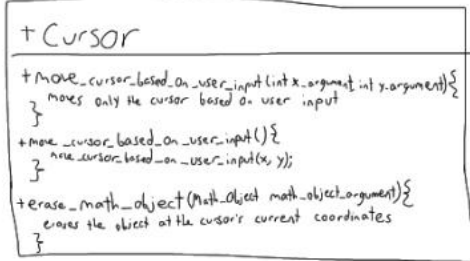 + Cursor
+ move_cursor_based_on_user_input(int x_argument, int y_argument){
moves only the cursor based on user input
}
+ move_cursor_based_on_user_input(){
move_cursor_based_on_user_input(x, y);
}
+ erase_math_object(Math_Object math_object_argument){
erases the object at the cursor's current coordinates
}